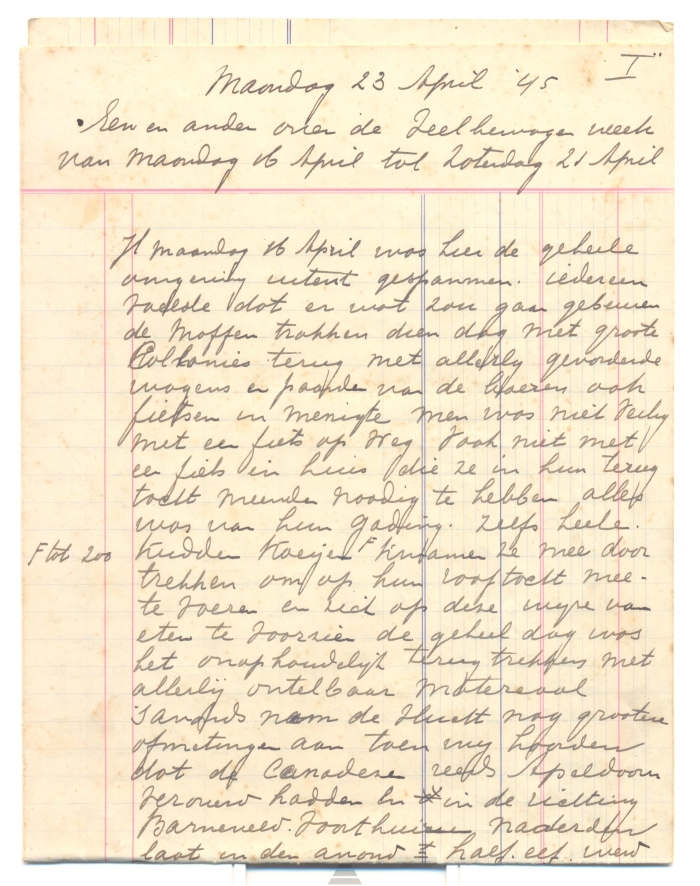 I
Maandag 23 April '45
Een en ander over de Veelbewogen week
van Maandag 16 April tot Zaterdag 21 April
Maandag 16 April was hier de geheele
omgeving uiterst gespannen. iedereen
voelde dat er wat zou gaan gebeuren
de Moffen trokken dien dag met groote
Collonies terug met allerly gevorderde
wagens en paarden van de boeren ook
fietsen in menigte men was niet Veilig
met een fiets op Weg Vook niet met
een fiets in huis die ze in hun terug
tocht meenden noodig te hebben alles
was van hun gading. Zelfs heele
F tot 200
Kudden Koeijen F kwamen ze mee door
trekken om op hun rooftocht mee-
te Voeren en zich op deze wyze van
eten te Voorzien de geheel dag was
het onophoudelijk terug trekken met
allerlij ontelbaar Matereaal
S'avonds nam de Vlucht nog grootere
afmetingen aan toen wy hoorden
dat de Canadeze reeds Apeldoorn
Veroverd hadden En in de richting
Barneveld. Voorthuizen naderden
laat in den avond ± half. elf. werd